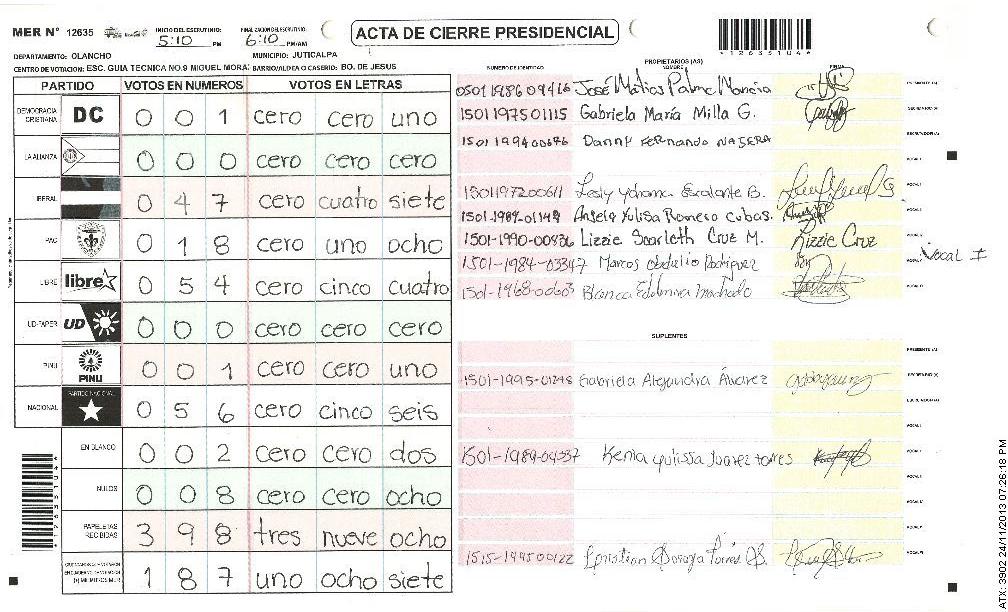 MER N° 12635
INICIO DEL ESCRUTINIO: 5:10 PM
FINALIZACION DEL ESCRUTINIO: 6:10 PM/AM
ACTA DE CIERRE PRESIDENCIAL
DEPARTAMENTO: OLANCHO MUNICIPIO: JUTICALPA
CENTRO DE VOTACION: ESC. GUIA TECNICA NO.9 MIGUEL MORA BARRIO/ALDEA O CASERIO: BO. DE JESUS
PARTIDO VOTOS EN NUMEROS VOTOS EN LETRAS
DEMOCRACIA CRISTIANA DC 0 0 1 cero cero uno
LA ALIANZA 0 0 0 cero cero cero
LIBERAL 0 4 7 cero cuatro siete
PAC 0 1 8 cero uno ocho
LIBRE libre 0 5 4 cero cinco cuatro
UD-FAPER UD 0 0 0 cero cero cero
PINU PINU 0 0 1 cero cero uno
NACIONAL PARTIDO NACIONAL 0 5 6 cero cinco seis
EN BLANCO 0 0 2 cero cero dos
NULOS 0 0 8 cero cero ocho
PAPELETAS RECIBIDAS 3 9 8 tres nueve ocho
1 8 7 uno ocho siete
PROPIETARIOS (AS)
NUMERO DE IDENTIDAD NOMBRE FIRMA
0501 1986 09416 José Matias Palma
1501197501115 Gabriela María Milla G.
1501 1994 00676 Danny Fernando NAJERA
1501197200611 Lesly Yohama Escalante B.
1501-1989-01149 Angela Yulisa Romero cubas.
1501-1990-00836 Lizzie Scarleth Cruz M. Lizzie Cruz
1501-1984-03347 Marcos Obdulio Rodriguez
Vocal I
1501-1968-00603 Blanca Edelmira Machado
SUPLENTES
1501-1995-01248 Gabriela Alejandra Álvarez
1501-1989-04337 Kenia yulissa Juarez torres
1515-199500122
1263514
ATX: 3902 24/11/2013 07:26:18 PM